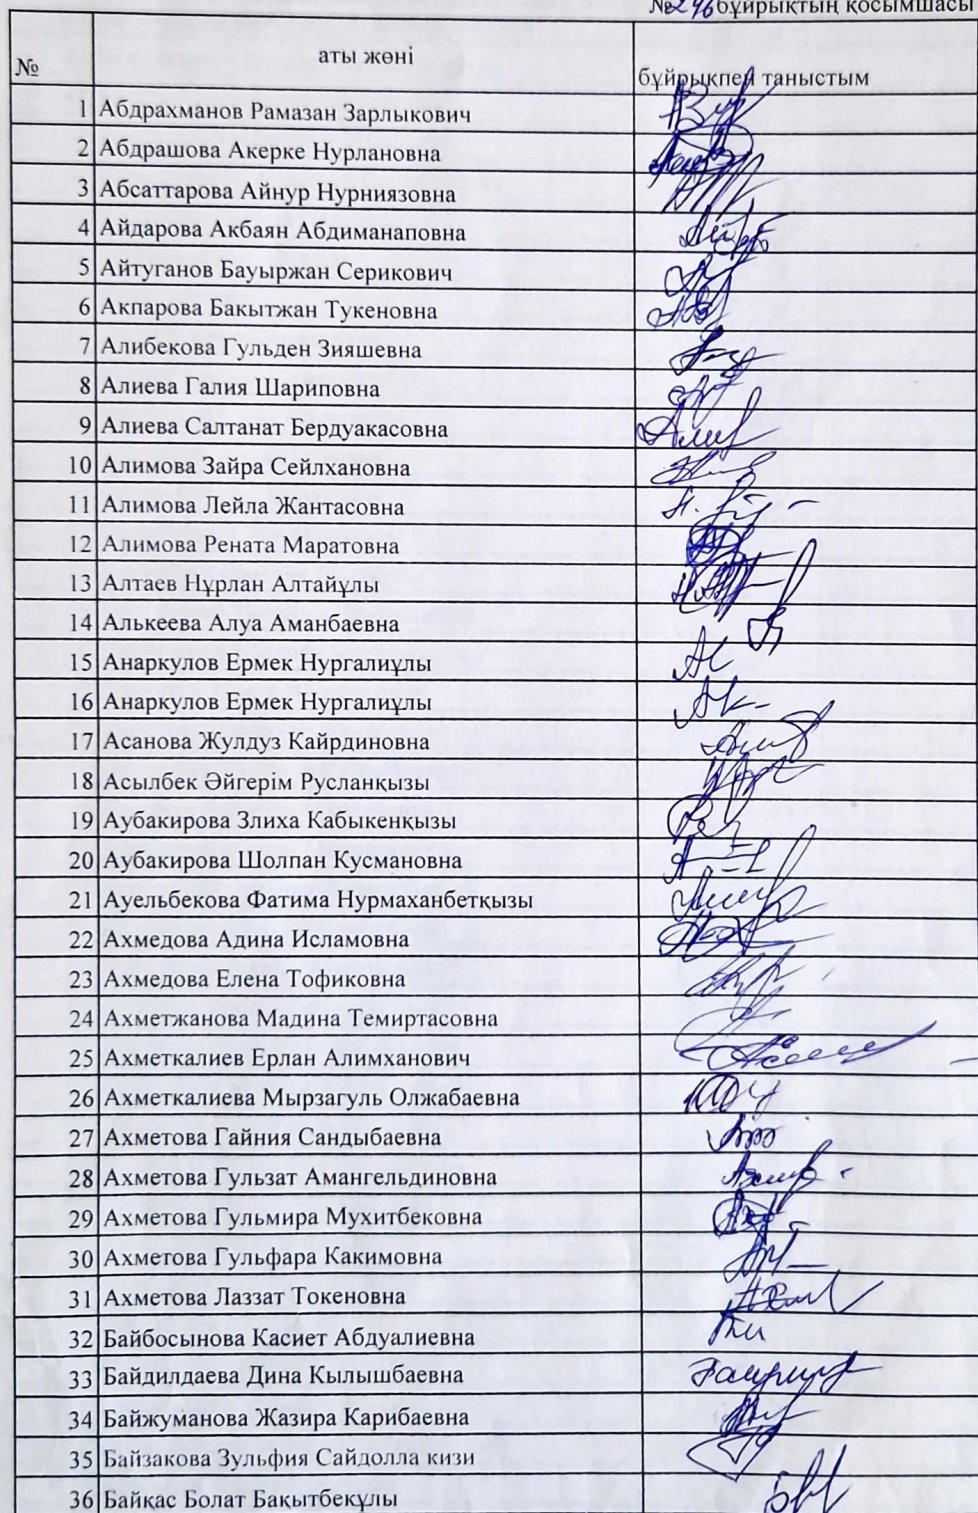 №246 бұйрықтың қосымшасы
№ аты жөні бұйрықпен таныстым
1 Абдрахманов Рамазан Зарлыкович
2 Абдрашова Акерке Нурлановна
3 Абсаттарова Айнур Нурниязовна
4 Айдарова Акбаян Абдиманаповна
5 Айтуганов Бауыржан Серикович
6 Акпарова Бакытжан Тукеновна
7 Алибекова Гульден Зияшевна
8 Алиева Галия Шариповна
9 Алиева Салтанат Бердуакасовна
10 Алимова Зайра Сейлхановна
11 Алимова Лейла Жантасовна
12 Алимова Рената Маратовна
13 Алтаев Нұрлан Алтайұлы
14 Алькеева Алуа Аманбаевна
15 Анаркулов Ермек Нургалиұлы
16 Анаркулов Ермек Нургалиұлы
17 Асанова Жулдуз Кайрдиновна
18 Асылбек Әйгерім Русланқызы
19 Аубакирова Злиха Кабыкенқызы
20 Аубакирова Шолпан Кусмановна
21 Ауельбекова Фатима Нурмаханбетқызы
22 Ахмедова Адина Исламовна
23 Ахмедова Елена Тофиковна
24 Ахметжанова Мадина Темиртасовна
25 Ахметкалиев Ерлан Алимханович
26 Ахметкалиева Мырзагуль Олжабаевна
27 Ахметова Гайния Сандыбаевна
28 Ахметова Гульзат Амангельдиновна
29 Ахметова Гульмира Мухитбековна
30 Ахметова Гульфара Какимовна
31 Ахметова Лаззат Токеновна
32 Байбосынова Касиет Абдуалиевна
33 Байдилдаева Дина Кылышбаевна
34 Байжуманова Жазира Карибаевна
35 Байзакова Зульфия Сайдолла кизи
36 Байқас Болат Бақытбекұлы